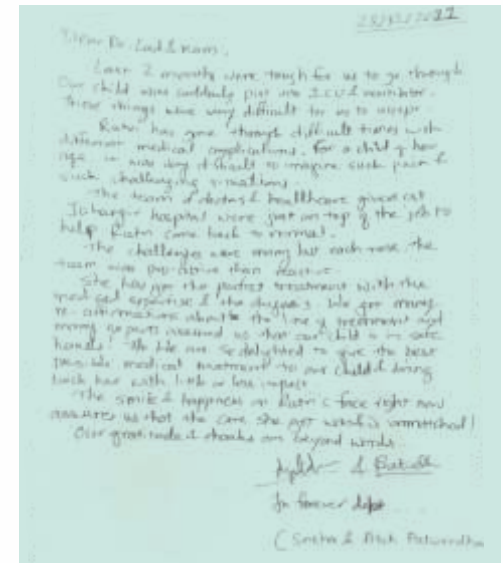 Dear Dr. Lad & Mam,
Last 2 months were tough for us to go through
Our child was suddenly put into ICU & ventilator.
These things were very difficult for us to accept
has gone through difficult times with
different medical complications. For a child of her
age, it was very difficult to imagine such pain &
such challenging situations.
The team of doctors & healthcare givers at
Jehangir hospital were just on top of the job to
help come back to normal.
The challenges were many but each time the
team was proactive than reactive.
She has got the perfect treatment with the
medical expertise & the diagnosis. We got many
re-affirmations about the line of treatment and
many experts assured us that our child is in safe
hands! We are so delighted to give the best
possible medical treatment to our child & bring
back her with little or less impact
The smile & happiness on face right now
assures us that the care she got was unmatched!
Our gratitude & thanks are beyond words.
&
In forever debt
( Sneha &